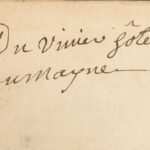 Du Vivier gôte
umayne